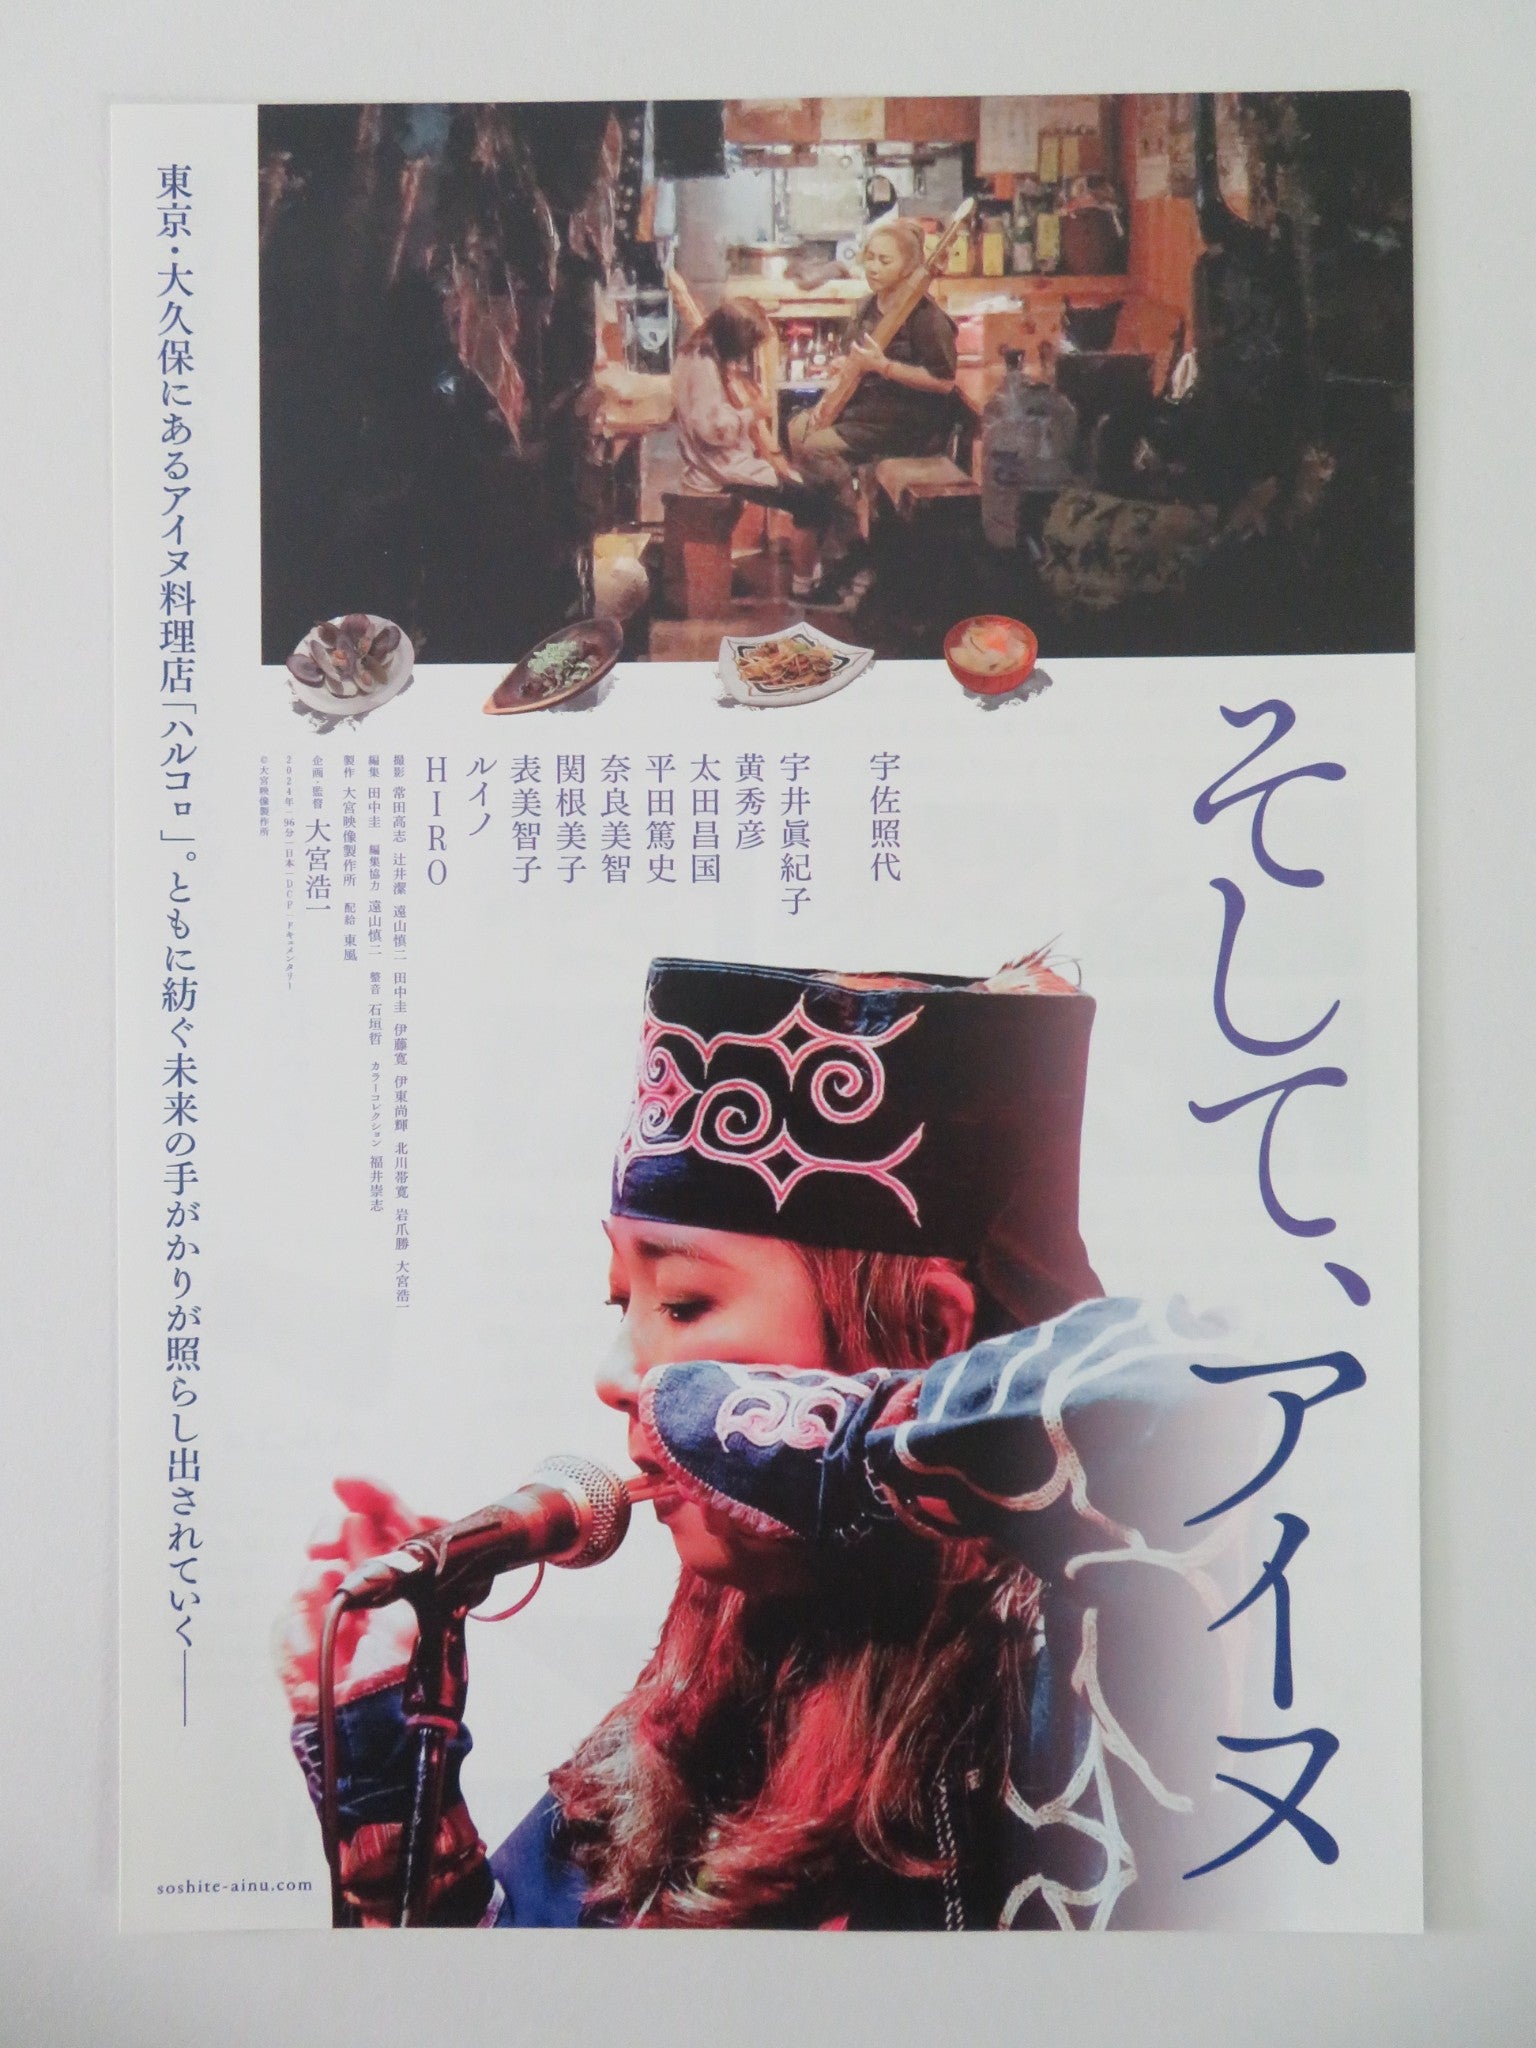 そして、アイヌ
宇佐照代
宇井眞紀子
黄秀彦
太田昌国
平田篤史
奈良美智
関根美子
表美智子
ルイノ
HIRO
撮影 常田高志 辻井潔 遠山慎二 田中圭 伊藤寛 伊東尚輝 北川帯寛 岩爪勝 大宮浩一
編集 田中圭 編集協力 遠山慎二 整音 石垣哲 カラーコレクション 福井崇志
製作 大宮映像製作所 配給 東風
企画・監督 大宮浩一
2024年|96分|日本|DCP|ドキュメンタリー
©大宮映像製作所
東京・大久保にあるアイヌ料理店「ハルコㇿ」。ともに紡ぐ未来の手がかりが照らし出されていく——
soshite-ainu.com